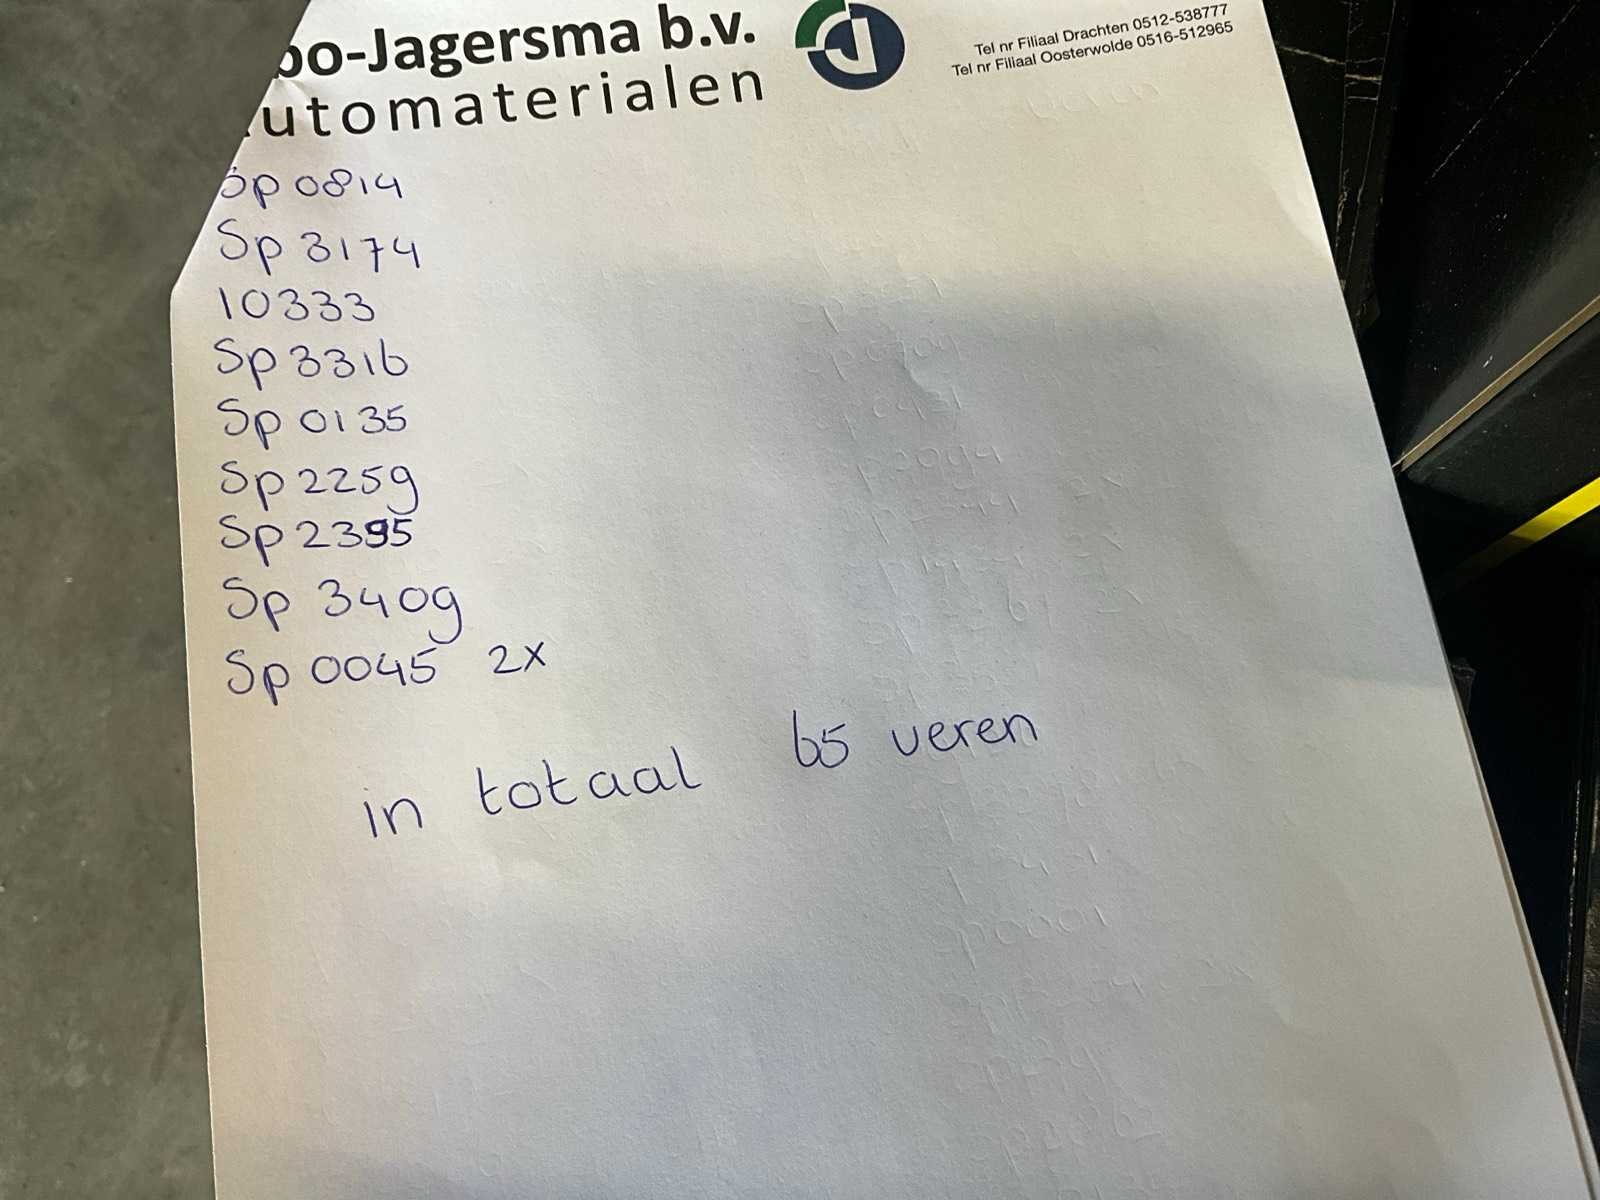 po-Jagersma b.v.
utomaterialen
Tel nr Filiaal Drachten 0512-538777
Tel nr Filiaal Oosterwolde 0516-512965
Sp 0814
Sp 3174
10333
Sp 3316
Sp 0135
Sp 2259
Sp 2395
Sp 3409
Sp 0045 2x
in totaal 65 veren